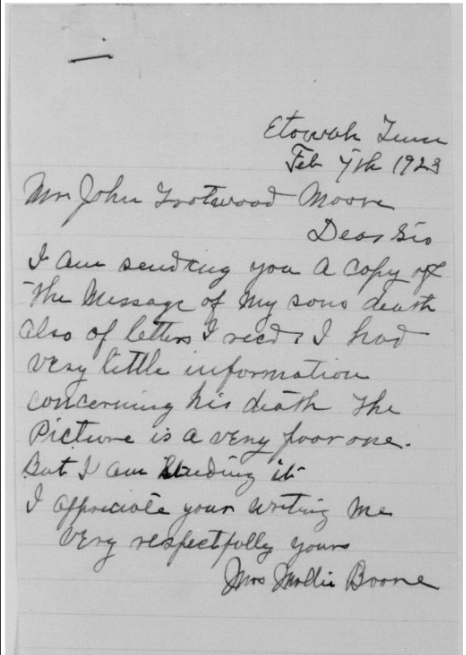 Etowah Tenn
Feb 7th 1923
Mr John Trotwood Moore
Dear Sir
I am sending you a copy of
the Message of my sons death
also of letters I recd. I had
very little information
concerning his death The
Picture is a very poor one.
But I am sending it
I appreciate your writing me
Very respectfully yours
Mrs Mollie Boone